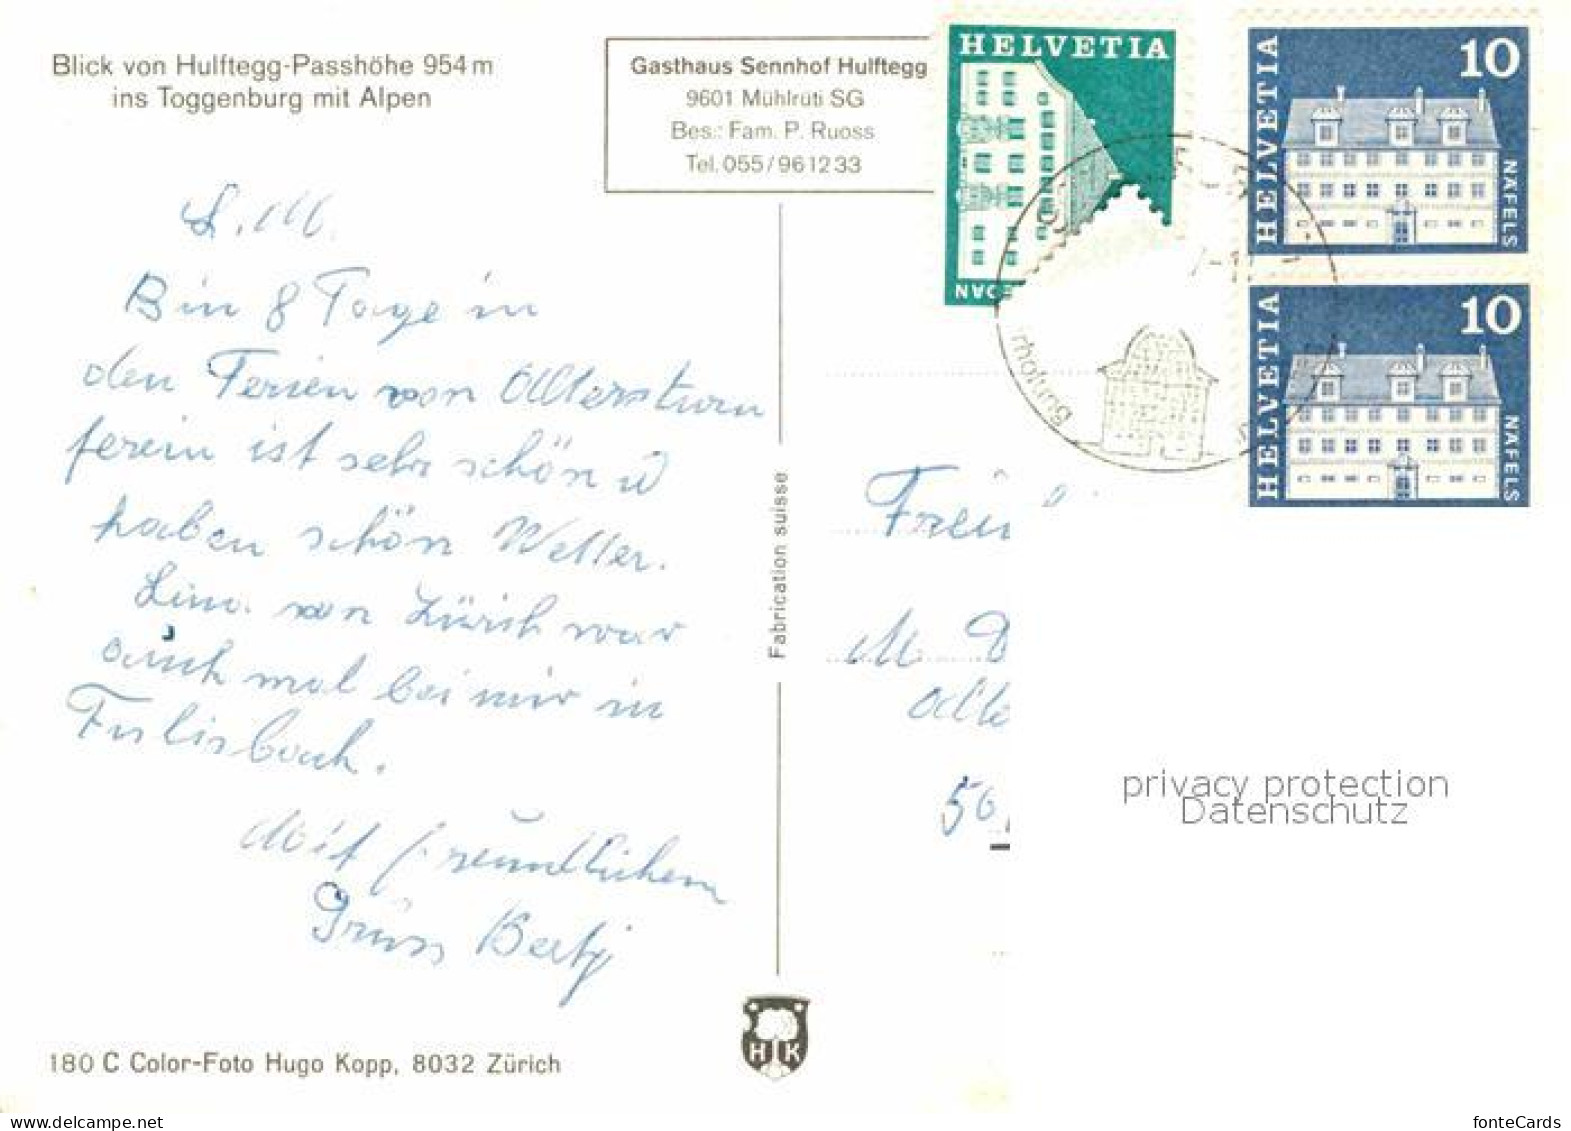 Blick von Hulftegg-Passhöhe 954 m
ins Toggenburg mit Alpen
Gasthaus Sennhof Hulftegg
9601 Mühlrüti SG
Bes.: Fam. P. Ruoss
Tel. 055/96 12 33
HELVETIA
EDAN
HELVETIA
10
NÄFELS
HELVETIA
10
NÄFELS
L. M.
Bin 8 Tage in
den Ferien von Altersturn
ferein ist sehr schön u
haben schön Wetter.
von Zürich war
auch mal bei mir in
Fulisbach.
Mit freundlichem
Grüss Bertj
Fabrication suisse
M D
50
privacy protection
Datenschutz
H K
180 C Color-Foto Hugo Kopp, 8032 Zürich
www.delcampe.net
fonteCards